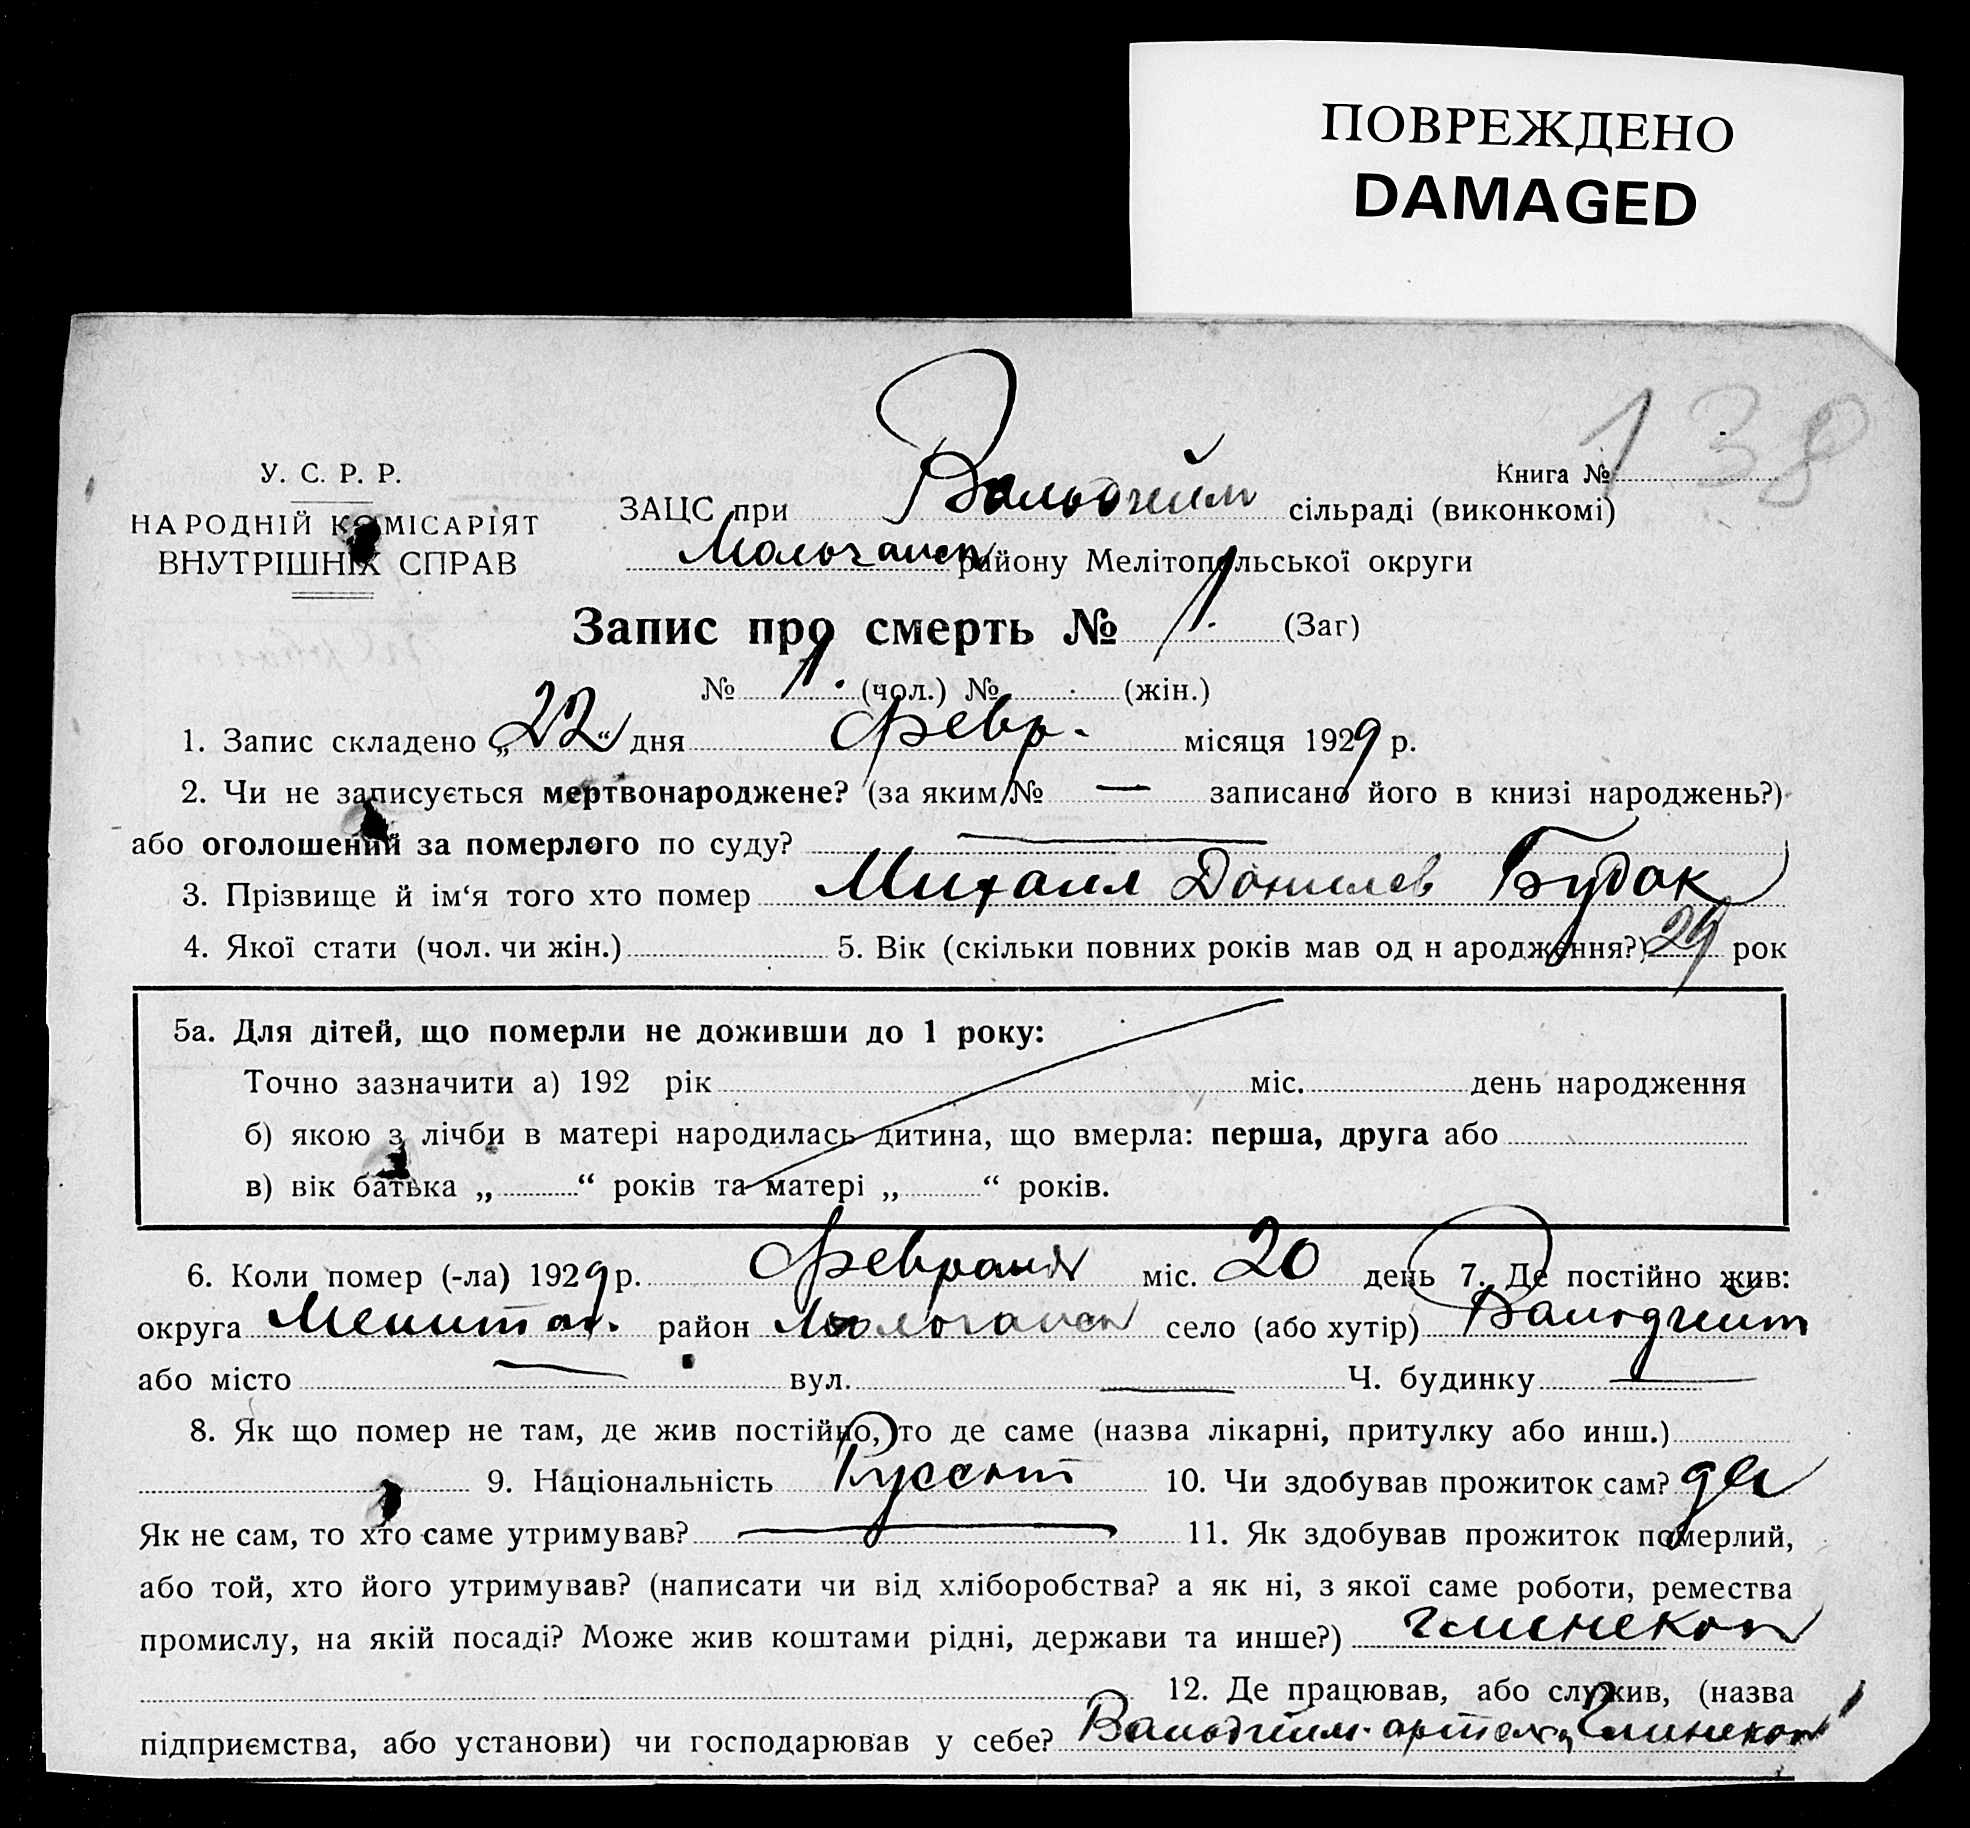 ПОВРЕЖДЕНО
DAMAGED
138
У. С. Р. Р.
НАРОДНІЙ КОМІСАРІЯТ
ВНУТРІШНІХ СПРАВ
Книга №
ЗАЦС при Вальдгейм сільраді (виконкомі)
Молочанск району Мелітопольської округи
Запис про смерть № 1. (Заг)
№ 1. (чол.) № (жін.)
1. Запис складено „22“ дня Февр. місяця 1929 р.
2. Чи не записується мертвонароджене? (за яким № — записано його в книзі народжень?)
або оголошений за померлого по суду? —
3. Прізвище й ім‘я того хто помер Михаил Данилов Будак
4. Якої стати (чол. чи жін.) 5. Вік (скільки повних років мав од н ародження?) 29 рок
5а. Для дітей, що померли не доживши до 1 року:
Точно зазначити а) 192 рік міс. день народження
б) якою з лічби в матері народилась дитина, що вмерла: перша, друга або
в) вік батька „ “ років та матері „ “ років.
6. Коли помер (-ла) 1929 р. Февраля міс. 20 день 7. Де постійно жив:
округа Мелитоп. район Молочанск село (або хутір) Вальдгейм
або місто — вул. — Ч. будинку —
8. Як що помер не там, де жив постійно, то де саме (назва лікарні, притулку або инш.)
9. Національність 10. Чи здобував прожиток сам? да
Як не сам, то хто саме утримував? — 11. Як здобував прожиток померлий,
або той, хто його утримував? (написати чи від хліборобства? а як ні, з якої саме роботи, ремества
промислу, на якій посаді? Може жив коштами рідні, держави та инше?) глинекоп
12. Де працював, або служив, (назва
підприємства, або установи) чи господарював у себе? Вальдгейм. артель Глинекоп